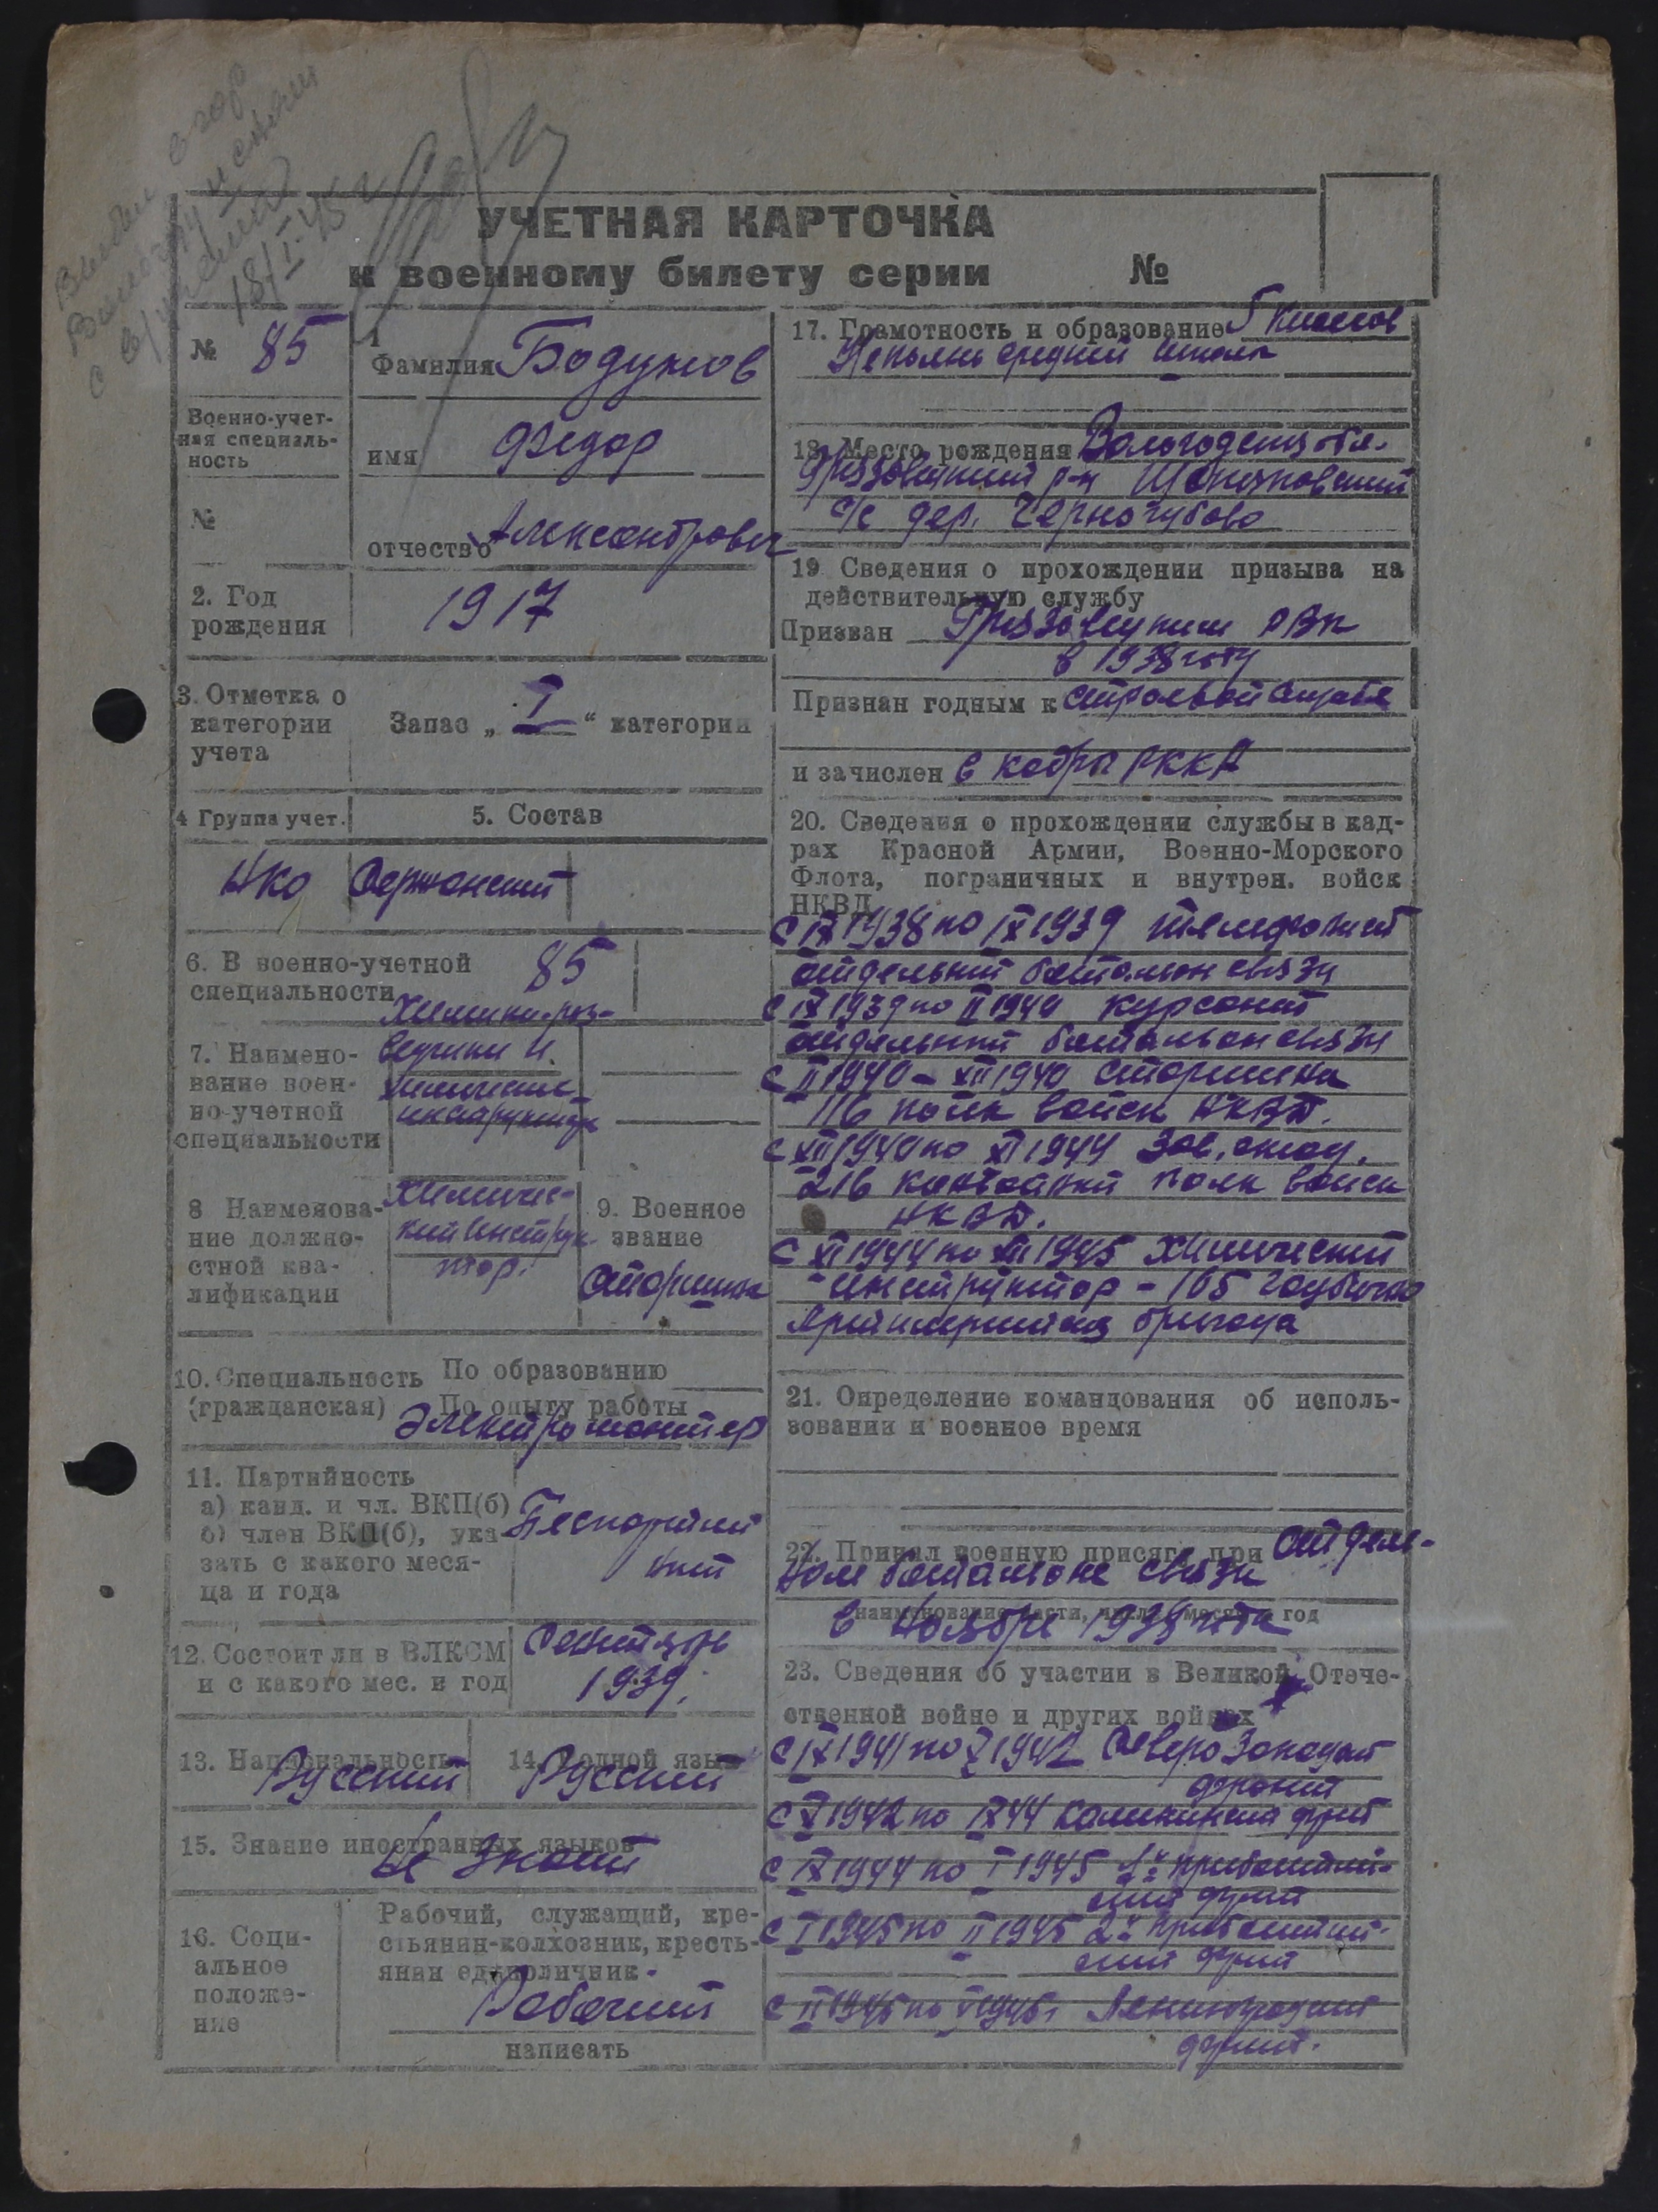 18/I-45 г
УЧЕТНАЯ КАРТОЧКА
к военному билету серии №
№ 85
1
Фамилия Бодунов
имя Федор
отчество Александрович
Военно-учет-
ная специаль-
ность
№
2. Год
рождения
1917
3. Отметка о
категории
учета
Запас „ I “ категории
4 Группа учет.
5. Состав
НКО Сержанский
6. В военно-учетной
специальности
85
7. Наимено-
вание воен-
но-учетной
специальности
Химики-раз-
ведчики и.
химические
инструктора
8 Наименова-
ние должно-
стной ква-
лификации
Химичес-
кий инструк-
тор.
9. Военное
звание
Старшина
10. Специальность
(гражданская)
По образованию
По опыту работы
Электромонтер
11. Партийность
а) канд. и чл. ВКП(б)
б) член ВКП(б), ука-
зать с какого меся-
ца и года
Беспартий
ный
12. Состоит ли в ВЛКСМ
и с какого мес. и год
Сентябрь
1939.
13. Национальность
Русский
14. Родной язык
Русский
15. Знание иностранных языков
Не знает
16. Соци-
альное
положе-
ние
Рабочий, служащий, кре-
стьянин-колхозник, кресть-
янин единоличник-
Рабочий
написать
17. Грамотность и образование 5 Классов
Неполно средней школы
18. Место рождения Вологодская обл.
Грязовецкий р-н
с/с дер. Черногубово
19 Сведения о прохождении призыва на
действительную службу
Призван Грязовецким РВК
в 1938 году
Признан годным к строевой службе
и зачислен в кадры РККА
20. Сведения о прохождении службы в кад-
рах Красной Армии, Военно-Морского
Флота, пограничных и внутрен. войск
НКВД
с IX 1938 по IX 1939 телефонист
отдельный батальон связи
с IX 1939 по II 1940 курсант
отдельный батальон связи
с II 1940 - XII 1940 старшина
116 полк войск НКВД.
с XII 1940 по XI 1944 Зав. склад.
216 конвойный полк войск
НКВД.
с XI 1944 по VIII 1945 Химический
инструктор - 165 гаубично
Артиллерийская бригада
21. Определение командования об исполь-
зовании и военное время
22. Принял военную присягу при отдель-
ном батальоне связи
наименование части, число, месяц и год
в ноябре 1938 года
23. Сведения об участии в Великой Отече-
ственной войне и других войнах
с IX 1941 по X 1942 Северо Западный
фронт
с X 1942 по IX 44 Калининский фронт
с IX 1944 по I 1945 1й прибалтий-
ский фронт
с I 1945 по II 1945 2й прибалтий-
ский фронт
с II 1945 по V 1945г Ленинградский
фронт.